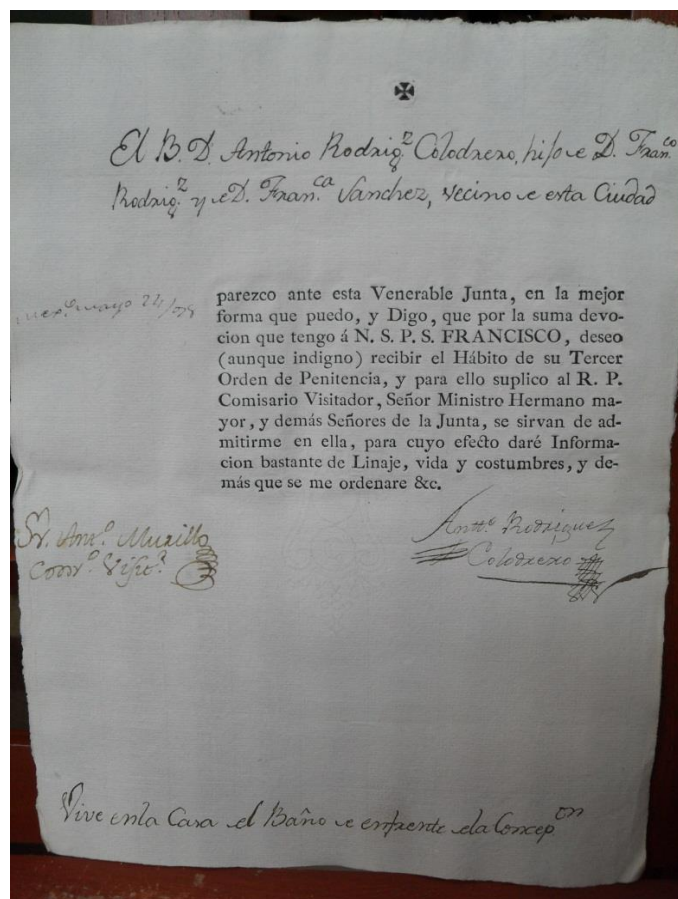 ✠
El B. D. Antonio Rodrig.z Colodrero, hijo de D. Fran.co
Rodrig.z y de D. Fran.ca Sanchez, vecino de esta Ciudad
mayo 24/
parezco ante esta Venerable Junta, en la mejor
forma que puedo, y Digo, que por la suma devo-
cion que tengo á N. S. P. S. FRANCISCO, deseo
(aunque indigno) recibir el Hábito de su Tercer
Orden de Penitencia, y para ello suplico al R. P.
Comisario Visitador, Señor Ministro Hermano ma-
yor, y demás Señores de la Junta, se sirvan de ad-
mitirme en ella, para cuyo efecto daré Informa-
cion bastante de Linaje, vida y costumbres, y de-
más que se me ordenare &c.
Antt.o Rodriguez
Colodrero
Fr. Ant.o Murillo
Com.o Visit.r
Vive en la Casa del Baño de enfrente de la Concep.on